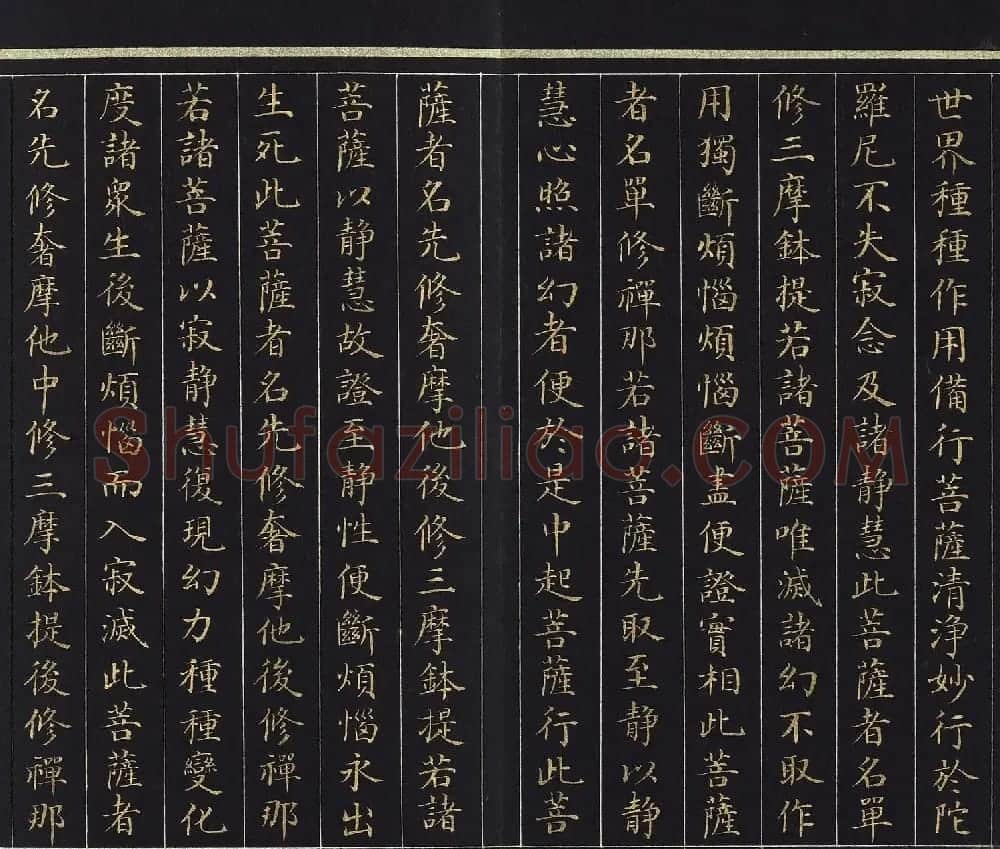 世界種種作用備行菩薩清淨妙行於陀
羅尼不失寂念及諸靜慧此菩薩者名單
修三摩鉢提若諸菩薩唯滅諸幻不取作
用獨斷煩惱煩惱斷盡便證實相此菩薩
者名單修禪那若諸菩薩先取至靜以靜
慧心照諸幻者便於是中起菩薩行此菩
薩者名先修奢摩他後修三摩鉢提若諸
菩薩以静慧故證至静性便斷煩惱永出
生死此菩薩者名先修奢摩他後修禪那
若諸菩薩以寂静慧復現幻力種種變化
度諸衆生後斷煩惱而入寂滅此菩薩者
名先修奢摩他中修三摩鉢提後修禪那
Shufaziliao.COM